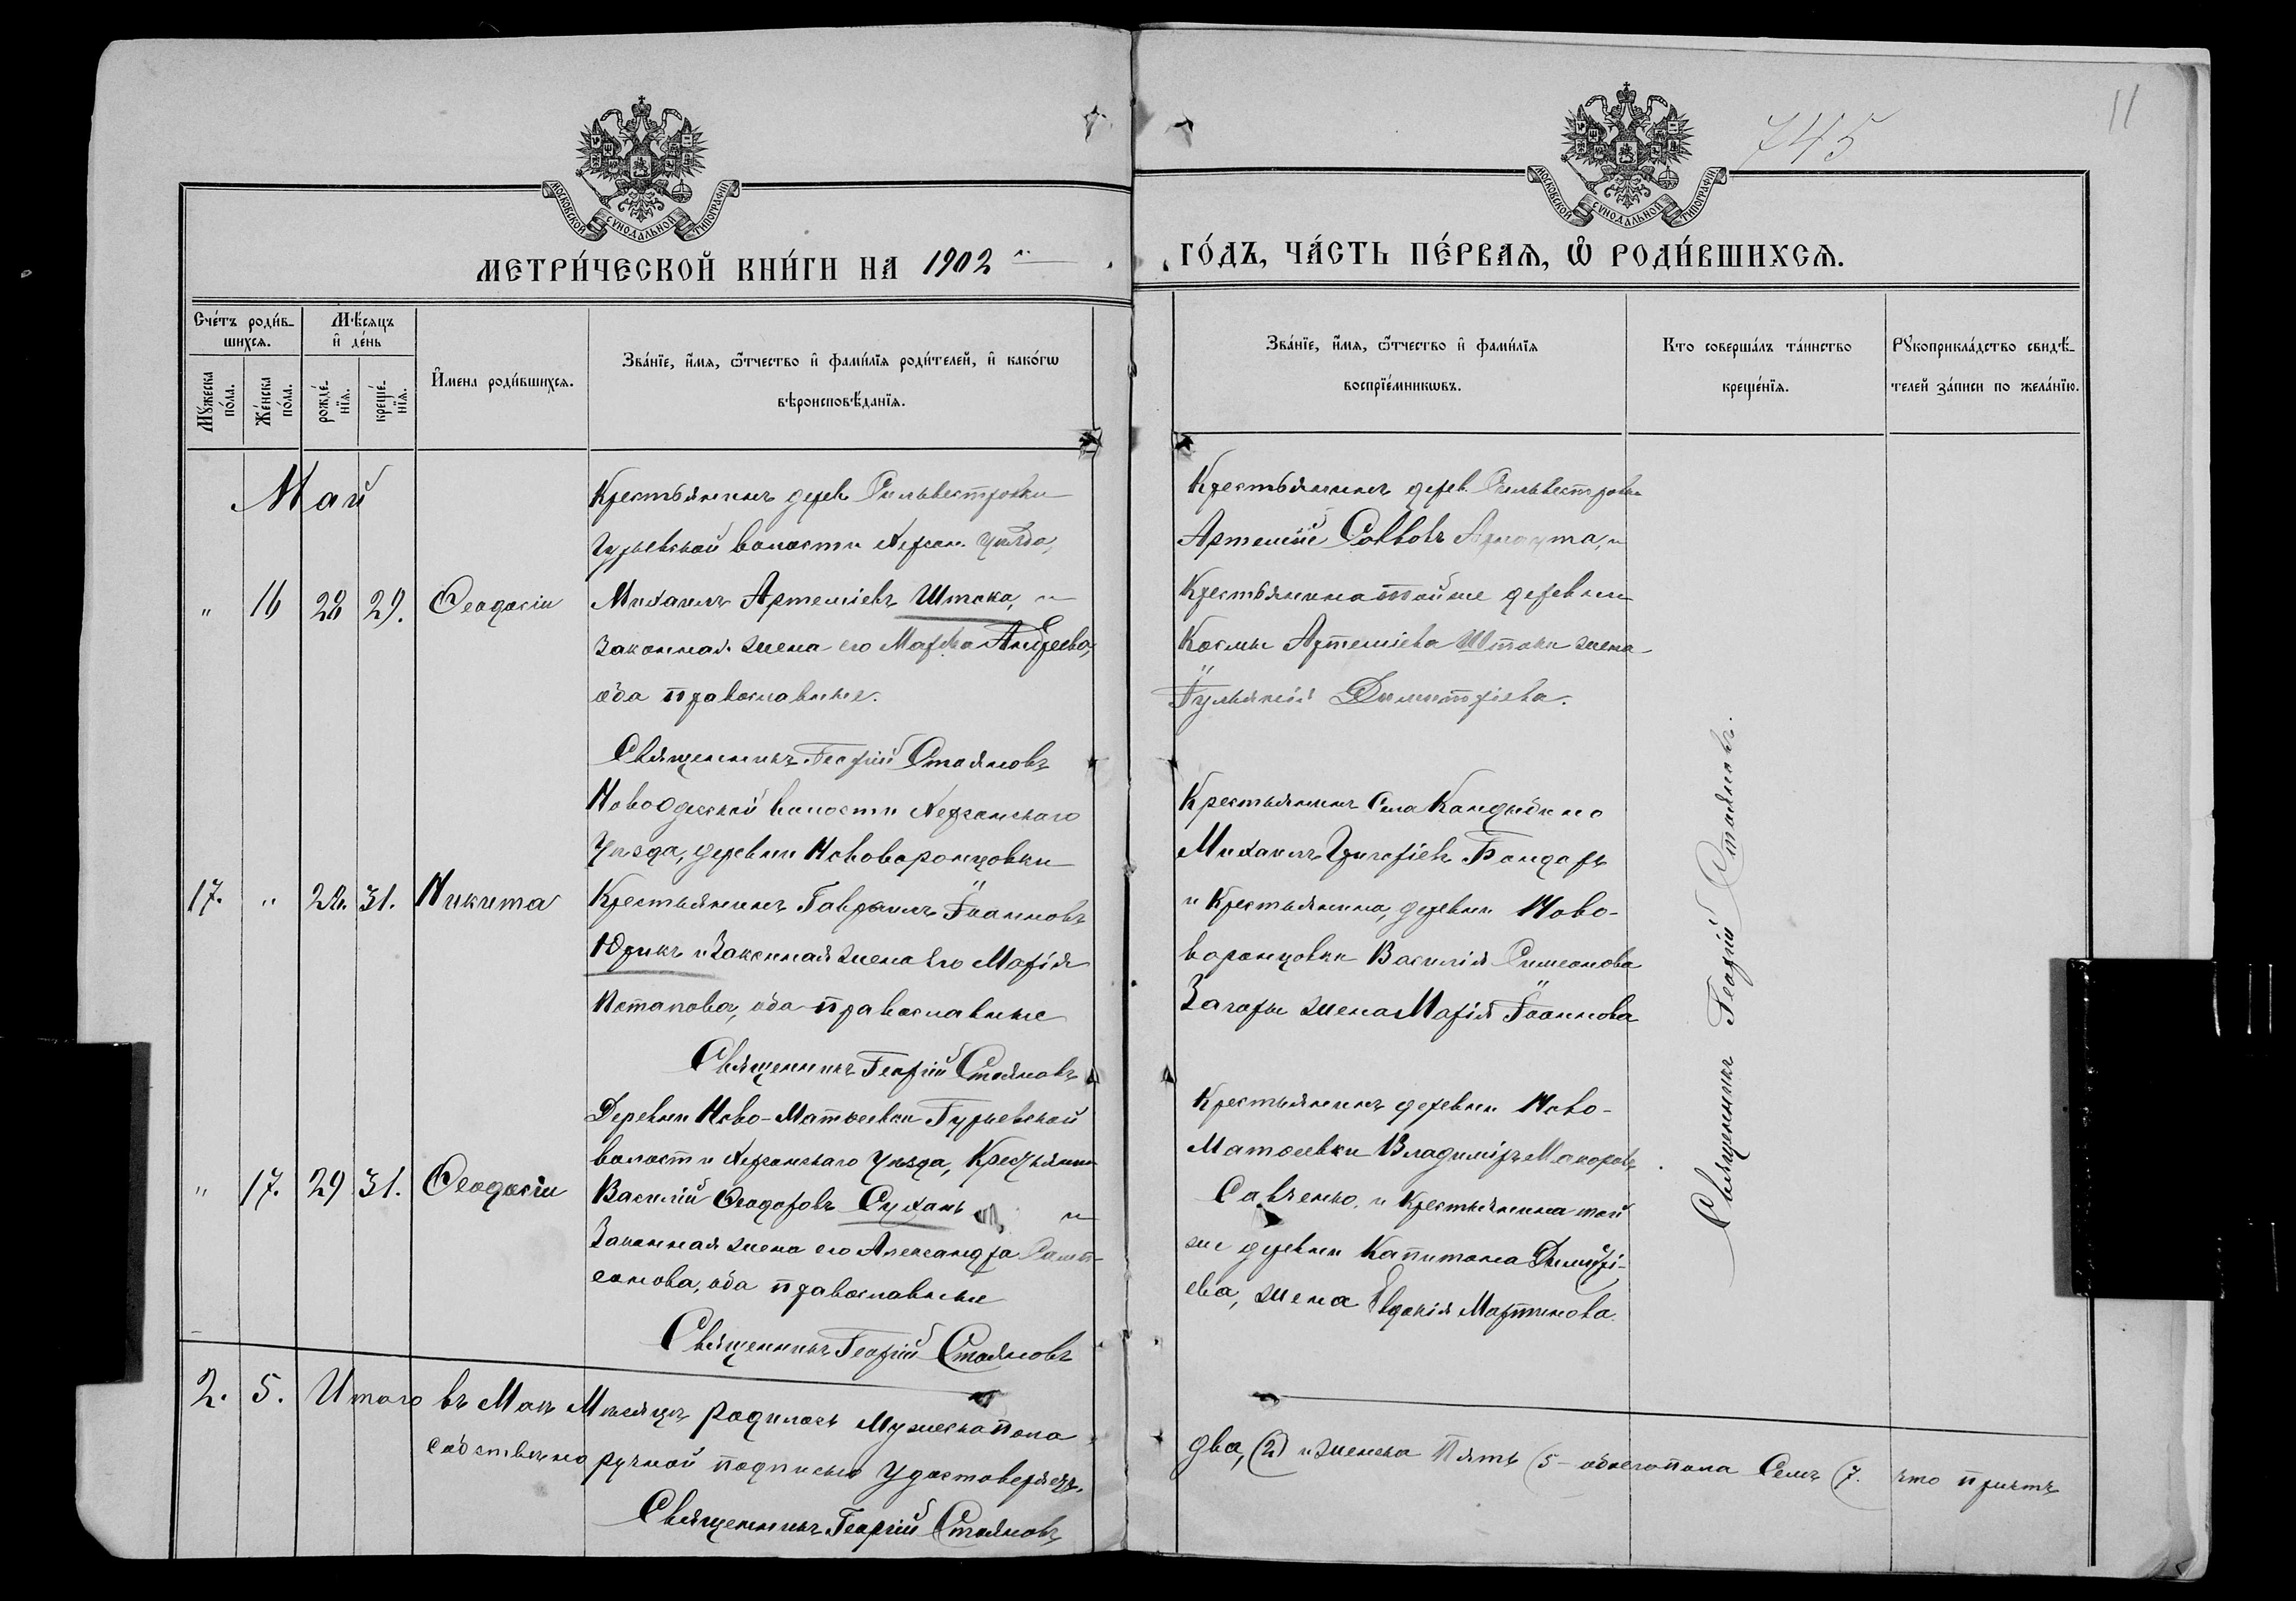 745
11
МОСКОВСКОЙ СѴНОДАЛЬНОЙ ТИПОГРАФІИ
МОСКОВСКОЙ СѴНОДАЛЬНОЙ ТИПОГРАФІИ
МЕТРИ́ЧЕСКОЙ КНИ́ГИ НА 1902
ГО́ДЪ, ЧА́СТЬ ПЕ́РВАѦ, Ѽ РОДИ́ВШИХСѦ.
Сче́тъ роди́в-
шихсѧ.
Мꙋ́жеска
по́ла.
Же́нска
по́ла.
Мѣ́сѧцъ
и҆ де́нь
рожде́-
нїѧ.
креще́-
нїѧ.
И҆мена̀ роди́вшихсѧ.
Зва́нїе, и҆́мѧ, ѻ҆́тчество и҆ фами́лїѧ роди́телей, и҆ како́гѡ
вѣроисповѣ́данїѧ.
Зва́нїе, и҆́мѧ, ѻ҆́тчество и҆ фами́лїѧ
воспрїе́мникѡвъ.
Кто соверша́лъ та́инство
креще́нїѧ.
Рꙋкоприкла́дство свидѣ́-
телей за́писи по жела́нїю.
Май
" 16 28 29. Ѳеодосія
Крестьянинъ дерев. Сильвестровки
Гурьевской волости Херсон. уѣзда,
Михаилъ Артеміевъ Штока, и
законная жена его Марѳа Андреева,
оба православные.
Священникъ Георгій Стояновъ
Крестьянинъ дерев. Сильвестровки
Артемій Саввовъ Арнаута, и
Крестьянина той же деревни
Космы Артеміева Штоки жена
Іуліанія Димитріева.
17. " 22. 31. Никита
Новоодесской волости Херсонскаго
Уѣзда, деревни Нововоронцовки
Крестьянинъ Гавріилъ Іоанновъ
Юрикъ и Законная жена его Марія
Потапова, оба православные
Священникъ Георгій Стояновъ
Крестьянинъ села Кандыбино
Михаилъ Григоріевъ Бондарь
и Крестьянина, деревни Ново-
воронцовки Василія Симеонова
Загоры жена Марія Іоаннова
" 17. 29 31. Ѳеодосія
Деревни Ново-Матѳеевки Гурьевской
волости Херсонскаго уѣзда, Крестьянинъ
Василій Ѳеодоровъ Сухань и
Законная жена его Александра Самп-
сонова, оба православные
Священникъ Георгій Стояновъ
Крестьянинъ деревни Ново-
Матѳеевки Владиміръ Макаровъ
Савченко, и Крестьянина той
же деревни Капитона Димитрі-
ева, жена Евдокія Мартинова.
Священникъ Георгій Стояновъ.
2. 5. Итого въ Маѣ Мѣсяцѣ родилось Мужеска пола
два, (2) и женска Пять (5 обоего пола Семь (7. что причтъ
собственноручной подписью удостоверяетъ.
Священникъ Георгій Стояновъ